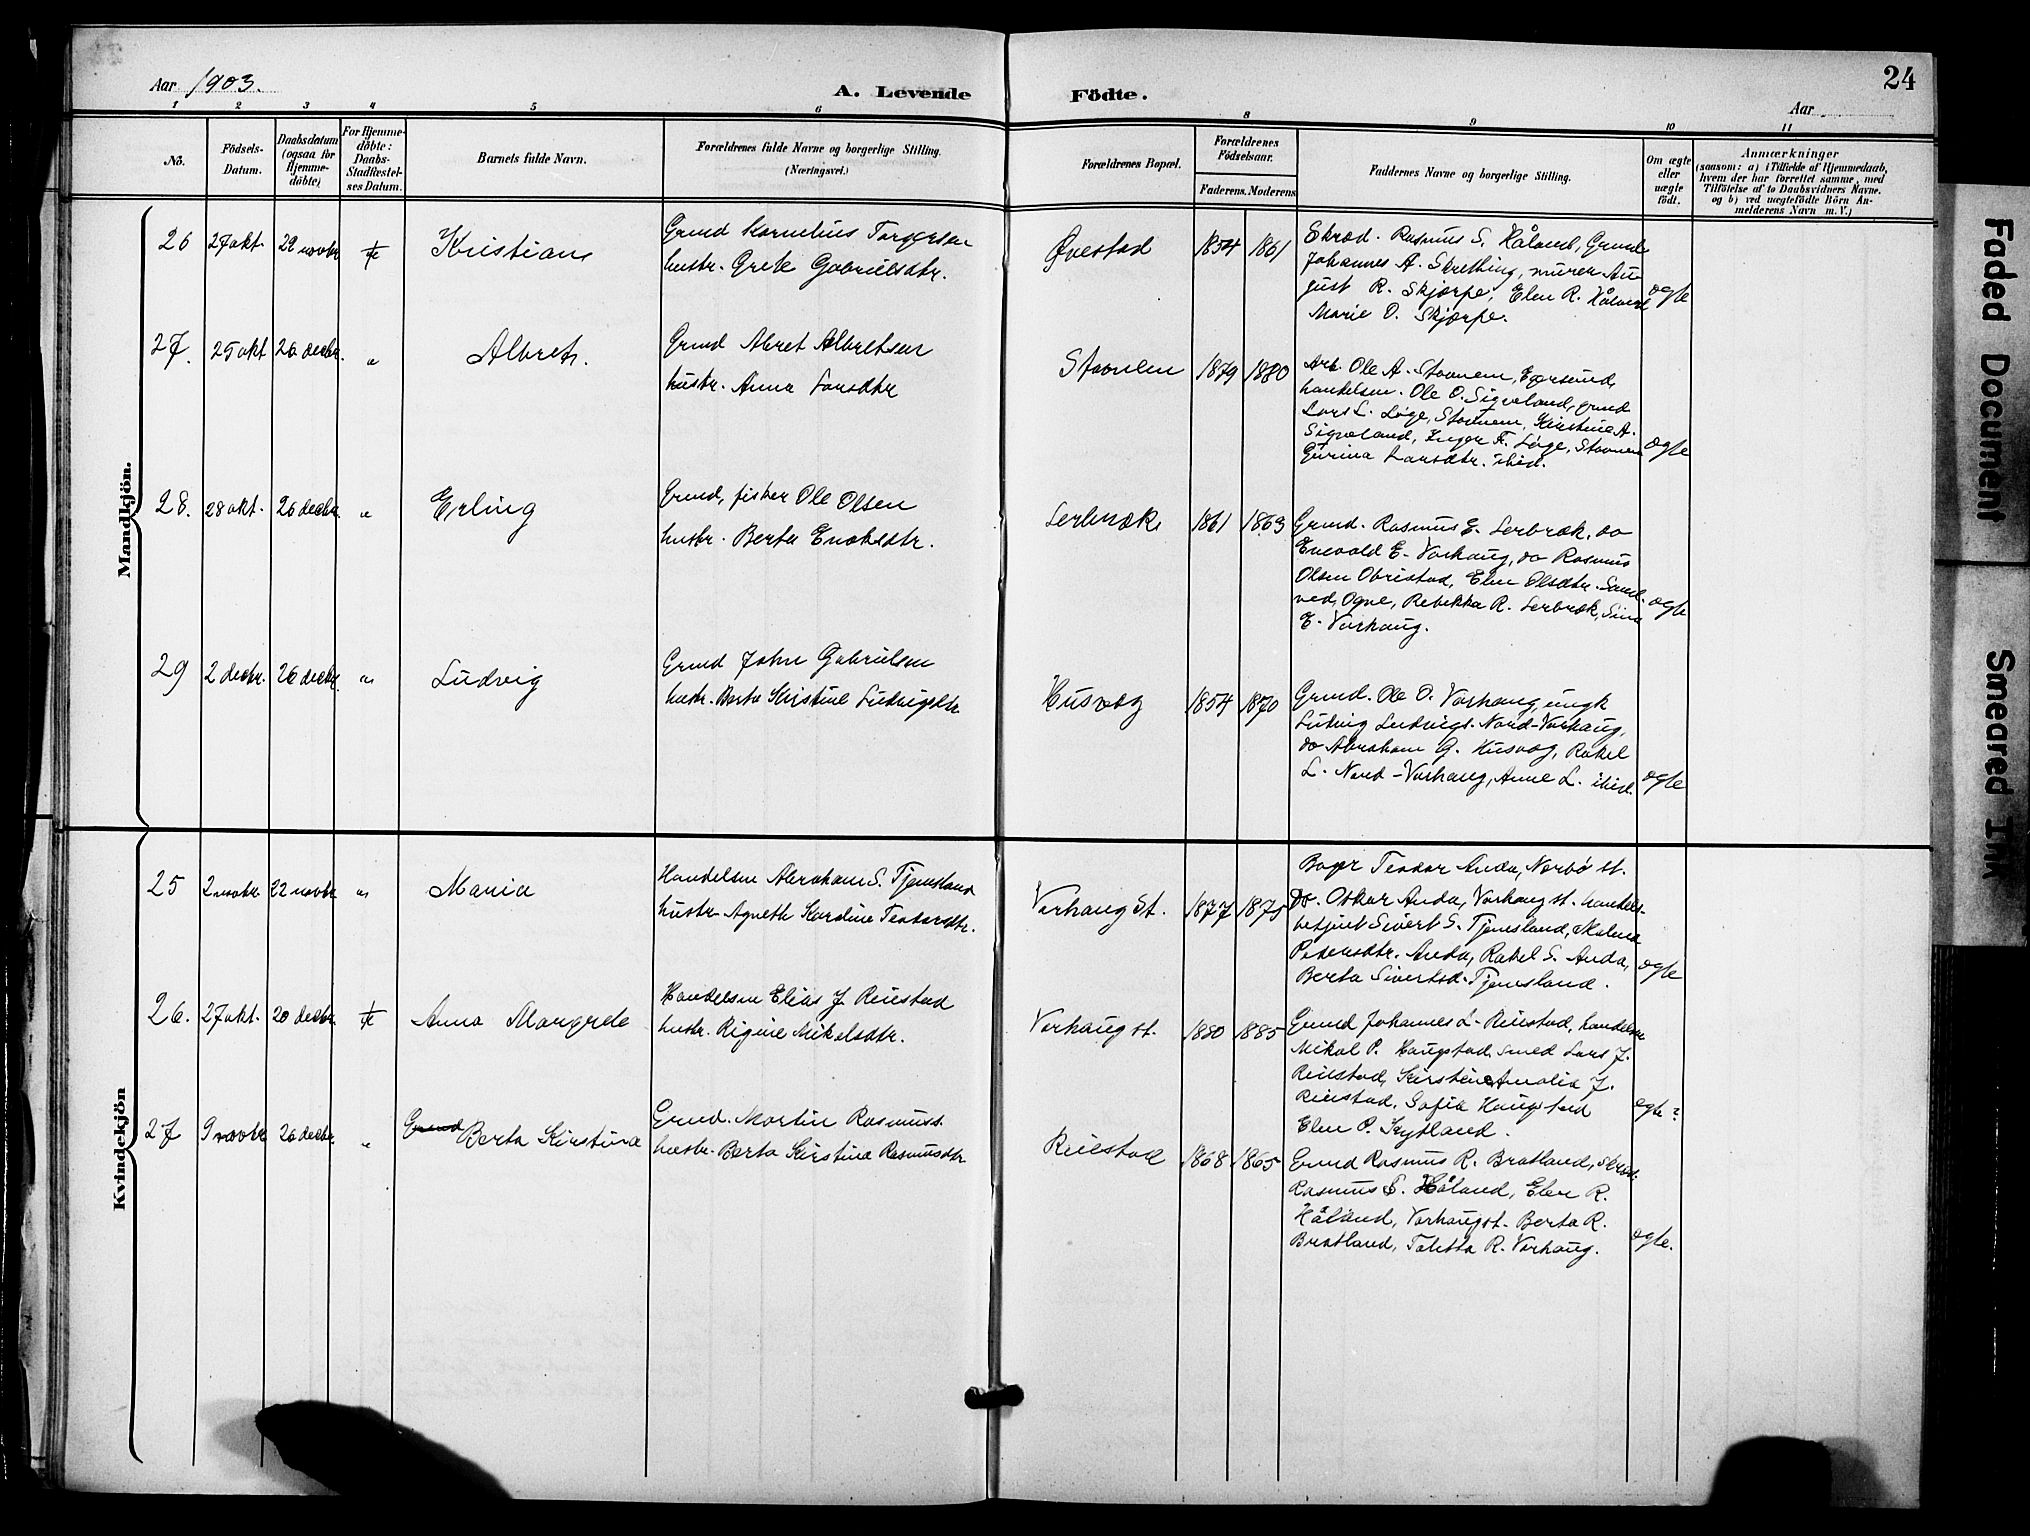 Aar 1903.
A. Levende Födte.
Aar
24
1 2 3 4 5 6 8 9 10 11
No.
Födsels-Datum.
Daabsdatum (ogsaa for Hjemme-döbte)
For Hjemme-döbte: Daabs-Stadfæstel-ses Datum.
Barnets fulde Navn.
Forældrenes fulde Navne og borgerlige Stilling. (Næringsvei.)
Forældrenes Bopæl.
Forældrenes Födselsaar.
Faderens. Moderens
Faddernes Navne og borgerlige Stilling.
Om ægte eller uægte födt.
Anmærkninger
(saasom: a) i Tilfælde af Hjemmedaab,
hvem der har forrettet samme, med
Tilföielse af to Daabsvidners Navne.
og b) ved uægtefödte Börn An-
melderens Navn m. V.)
Mandkjön.
26 27 okt. 22 novbr Kristian
Grmd Kornelius Torgersen
hustr. Grete Gabrielsdtr.
Øvestad 1854 1861
Skræd. Rasmus S. Håland, Grmd
Johannes A. Skretting, murer Au-
gust R. Skjærpe, Elen R. Håland
Marie O. Skjærpe.
ægte
27. 25 okt 26 decbr. " Albret.
Grmd Abret Albretsen
hustr. Anna Larsdtr
Stavnem 1879 1880
Arb. Ole A. Stavnem, Egersund,
handelsm. Ole O. Sigveland, grmd
Lars L. Løge, Stavnem, Kirstine A.
Sigveland, Inger F. Løge, Stavnem
Gurina Larsdtr. ibid.
ægte
28. 28 okt. 26 decbr. " Erling
Grmd, fisker Ole Olsen
hustr. Berta Enoksdtr.
Lerbræk 1861 1863
Grmd. Rasmus E. Lerbræk, do
Enevald E. Varhaug, do Rasmus
Olsen Obrestad, Elen Olsdtr. Sand-
ved, Ogne, Rebekka R. Lerbræk, Sina
E. Varhaug.
ægte
29 2 decbr. 26 decbr. " Ludvig
Grmd John Gabrielsen
hustr. Berta Kirstine Ludvigsdtr
Husvæg 1854 1870
Grmd. Ole O. Varhaug, ungk
Ludvig Ludvigs. Nord-Varhaug,
do Abraham G. Husvæg, Rakel
L. Nord-Varhaug, Anne L. ibid.
ægte
Kvindekjön
25 2 novbr. 22 novbr " Maria
Handelsm Abraham S. Tjemsland
hustr. Agneth Kardine Teodorsdtr.
Varhaug St. 1877 1875
Bager Teodor Anda, Nærbø st.
Do. Oskar Anda, Varhaug st. handels-
betjent Sivert S. Tjemsland, Malena
Pedersdtr. Anda, Rakel S. Anda,
Berta Sivertsd. Tjemsland.
ægte
26. 27 okt. 20 decbr. Anna Margrete
Handelsm Elias J Reiestad
hustr. Regine Mikalsdtr.
Varhaug st. 1880 1885
Grmd Johannes L. Reiestad, handelsm
Mikal P. Haugstad, smed Lars J.
Reiestad, Kirstine Amalia J.
Reiestad, Sofia Haugstad
Elen P. Kytland.
ægte?
27 9 novbr 26 decbr. " Grmd Berta Kirstina
Grmd. Martin Rasmuss.
hustr. Berta Kirstina Rasmusdtr
Reiestad 1868 1865
Grmd Rasmus R. Bratland, skræd.
Rasmus S. Håland, Elen R.
Håland, Varhaug st. Berta R.
Bratland, Taletta R. Varhaug.
ægte.
Faded Document
Smeared Ink